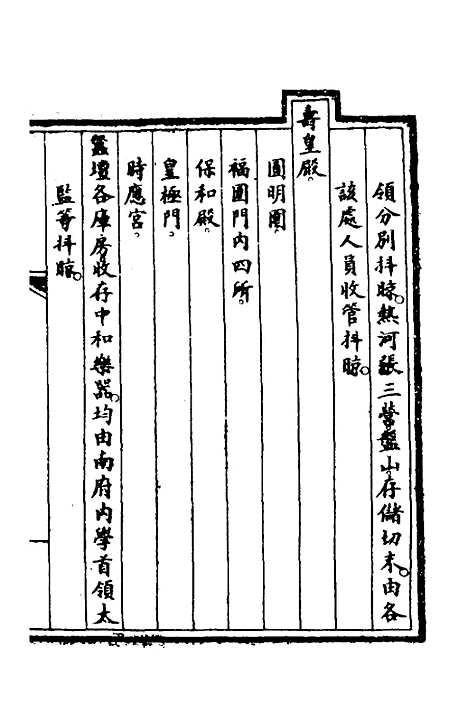 領分別抖晾。熱河張三營盤山存儲切末。由各
該處人員收管抖晾。
壽皇殿。
圓明園。
福園門內四所。
保和殿。
皇極門。
時應宮。
蠶壇各庫房收存中和樂器。均由南府內學首領太
監等抖晾。